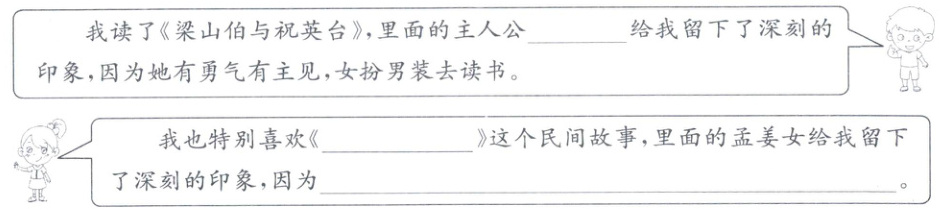 我读了《梁山伯与祝英台》,里面的主人公________给我留下了深刻的
印象,因为她有勇气有主见,女扮男装去读书。
我也特别喜欢《____________》这个民间故事,里面的孟姜女给我留下
了深刻的印象,因为______________________________________________。